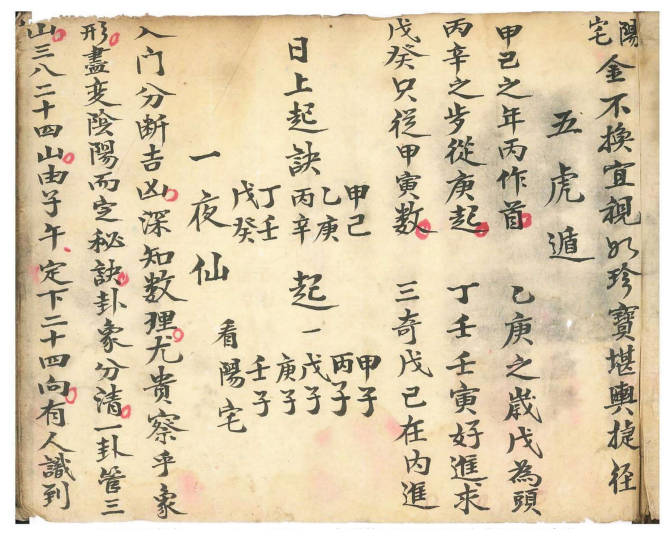 陽宅金不換宜視如珍寶堪輿捷径
五虎遁
甲己之年丙作首 乙庚之歲戊為頭
丙辛之步從庚起 丁壬壬寅好進求
戊癸只從甲寅數 三奇戊己在内進
日上起訣
甲己 乙庚 丙辛 丁壬 戊癸
起
甲子 丙子 戊子 庚子 壬子
一夜仙 看陽宅
入门分断吉凶深知数理尤貴察乎象
形盡变陰陽而定秘訣卦象分清一卦管三
山三八二十四山由子午定下二十四向有人識到